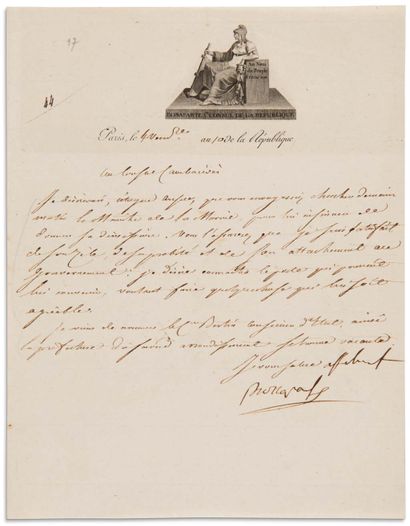 17
14
Au Nom
du Peuple
Français
BONAPARTE, 1er CONSUL DE LA REPUBLIQUE.
Paris, le 4 Vend.re an 10 de la République
Au Consul Cambacérès
Je désirerais, citoyen Consul, que vous envoyassiez chercher demain
matin le Ministre de la Marine, pour lui
donner sa démission. Vous l'assurerez que je suis satisfait
de son zèle, de sa probité et de son attachement au
Gouvernement: je désire connaître le poste qui pourrait
lui convenir, voulant faire quelque chose qui lui soit
agréable.
Je viens de nommer le C.en Bertin conseiller d'Etat, ainsi
la préfecture du arrondissement se trouve vacante.
Je vous salue affectueusement
Bonaparte